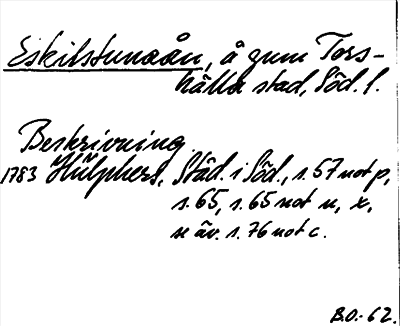 Eskilstunaån, å gnm Tors-
hälla stad, Söd. l.
Beskrivning.
1783 Hülphers, Städ. i Söd., s. 57 not p,
s. 65, s. 65 not u, x,
u äv. s. 76 not c.
B.O.-62.